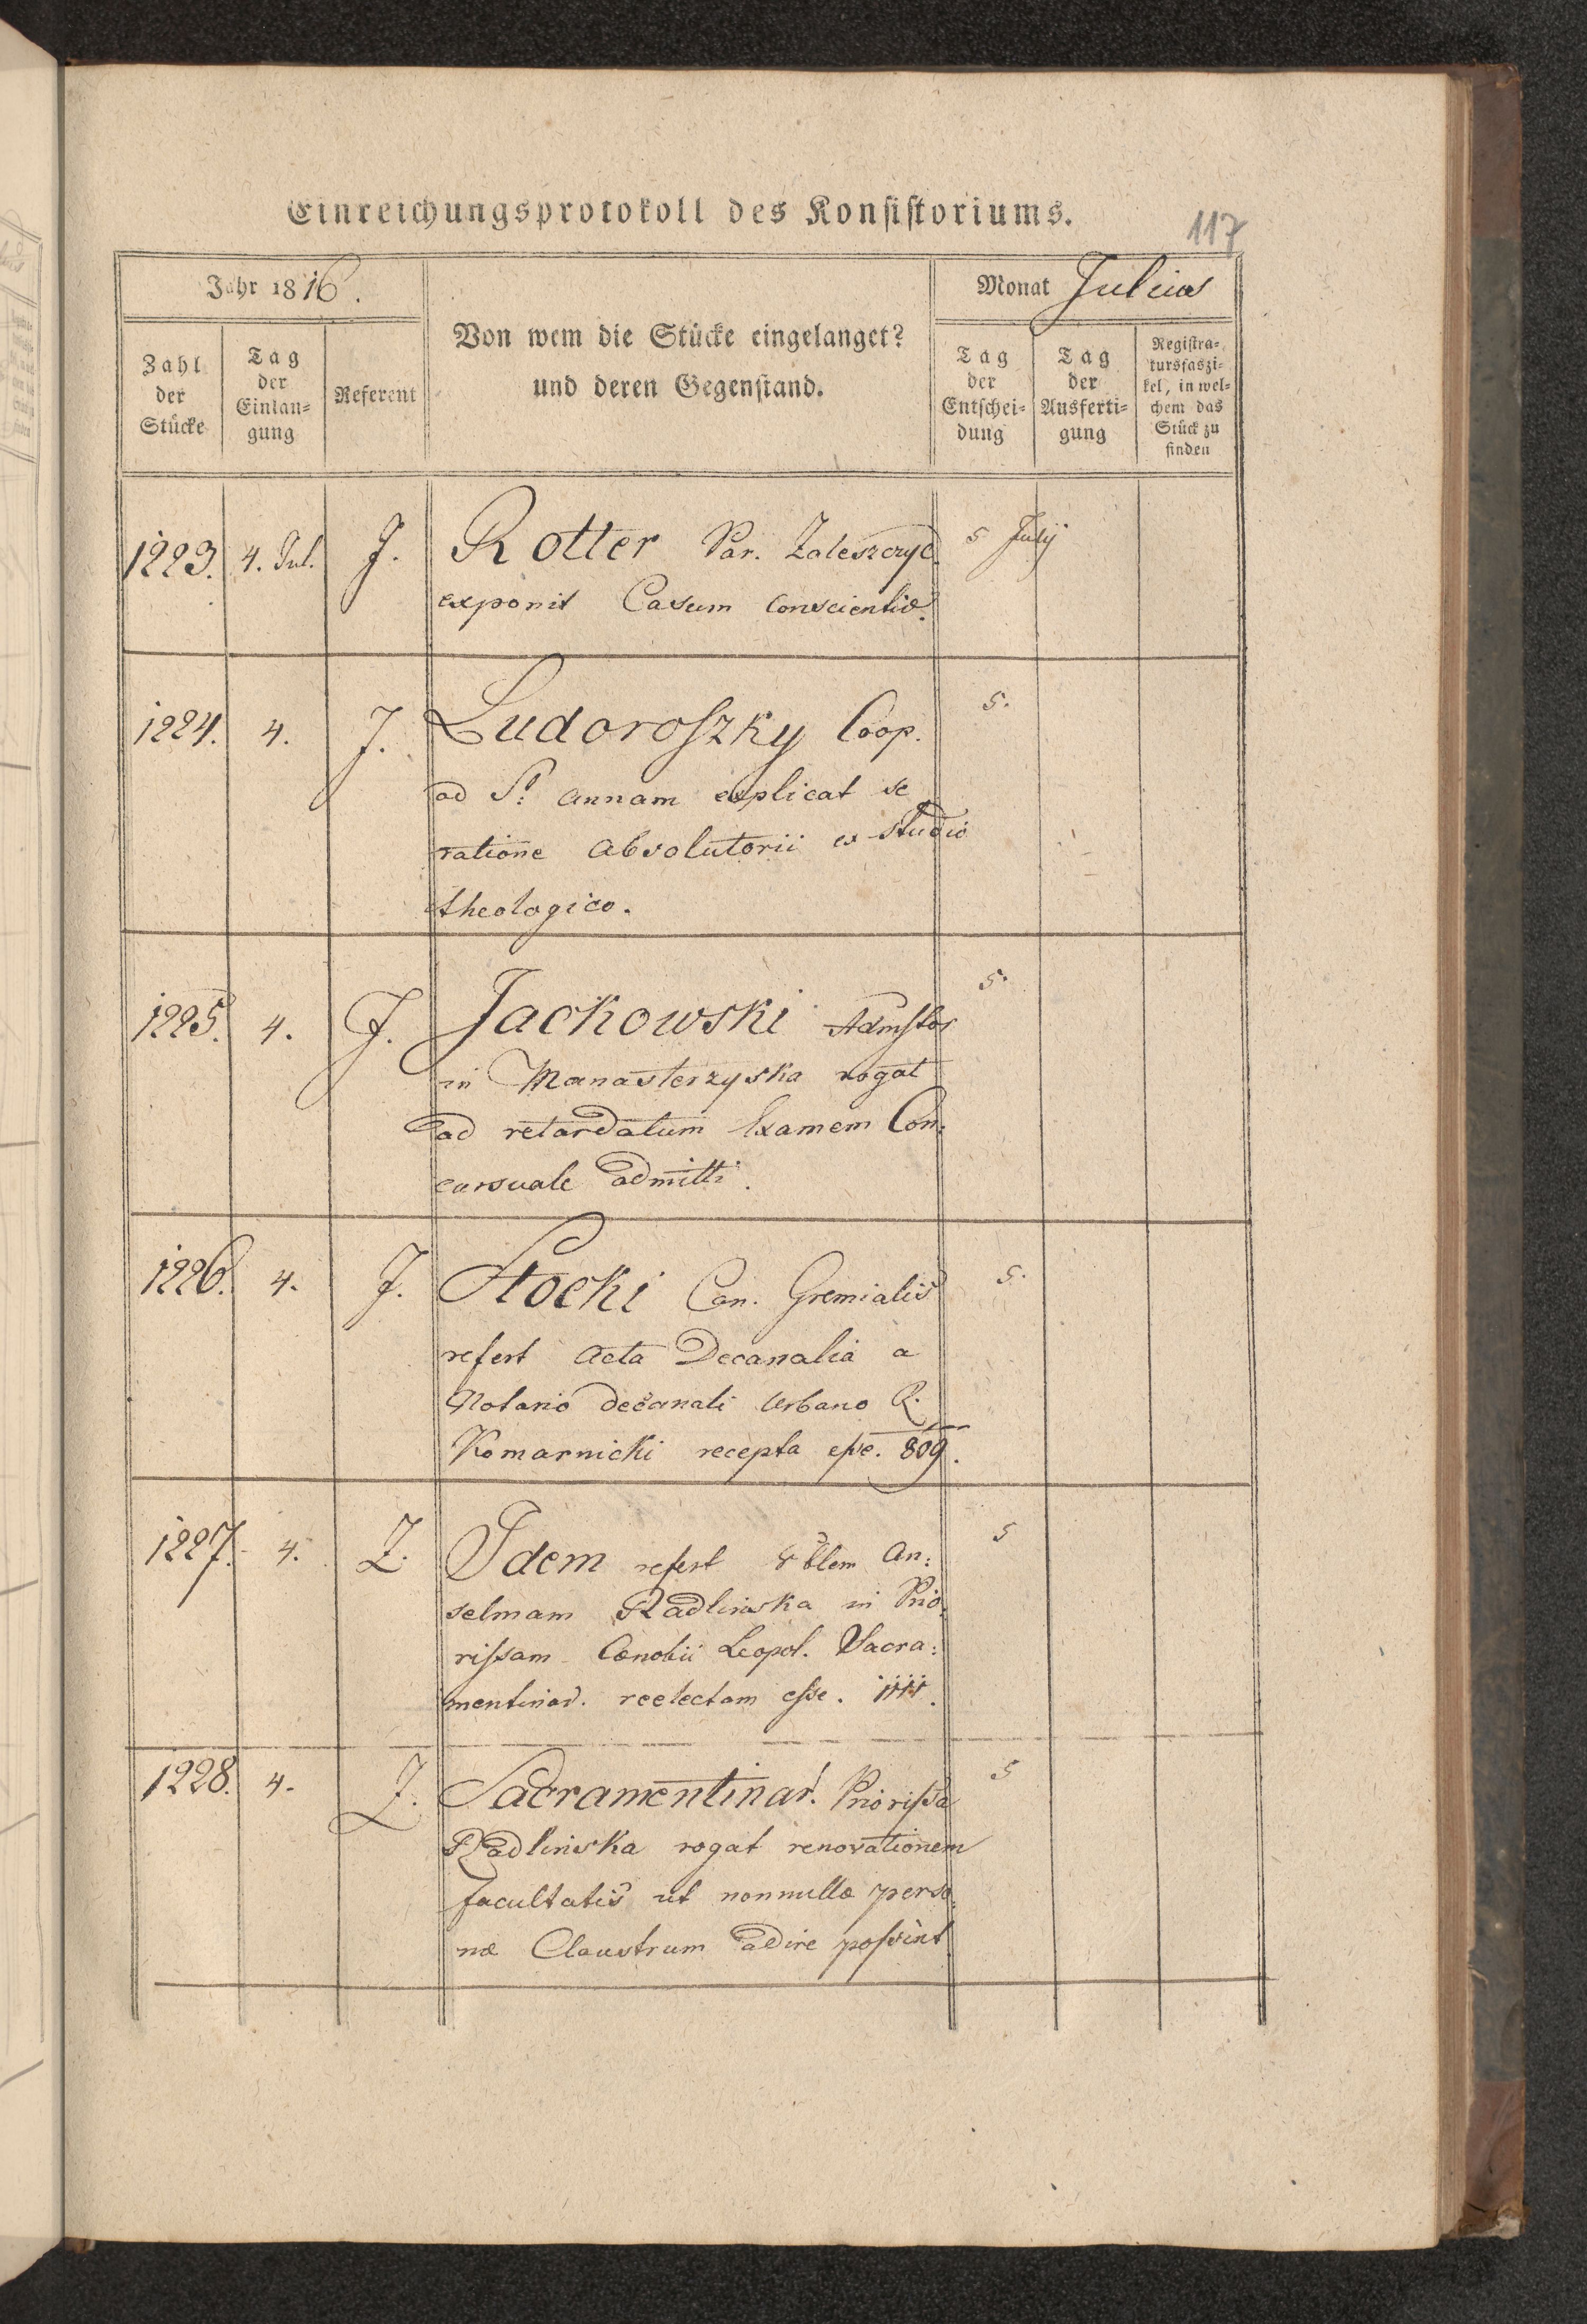 Einreichungsprotokoll des Konsistoriums.
117
Jahr 1816.
Monat Julius
Von wem die Stücke eingelanget?
und deren Gegenstand.
Zahl
der
Stücke
Tag
der
Einlan=
gung
Referent
Tag
der
Entschei=
dung
Tag
der
Ausferti=
gung
Registra=
tursfaszi=
kel, in wel=
chem das
Stück zu
finden
1223. 4. Jul. J. Rotter Par. Zaleszczyc. 5 July
exponit Casum conscientiæ.
1224. 4. J. Ludoroszky Coop. 5.
ad St. Annam explicat se
ratione Absolutorii ex studio
theologico.
1225. 4. J. Jackowski Admstor 5.
in Manasterzyska rogat
ad retardatum Examem Con:
cursuale admitti.
1226. 4. J. Stocki Can. Gremialis 5.
refert acta Decanalia a
Notario decanali Urbano R.
Komarnicki recepta esse. 809.
1227. 4. Z. Idem refert An: 5
selmam Radlinska in Prio,
rissam Cœnobii Leopol. Sacra:
mentinar. reelectam esse.
1228. 4. Z. Sacramentinar. Priorissa 5
Radlinska rogat renovationem
facultatis ut nonnullæ perso,
næ Claustrum adire possint